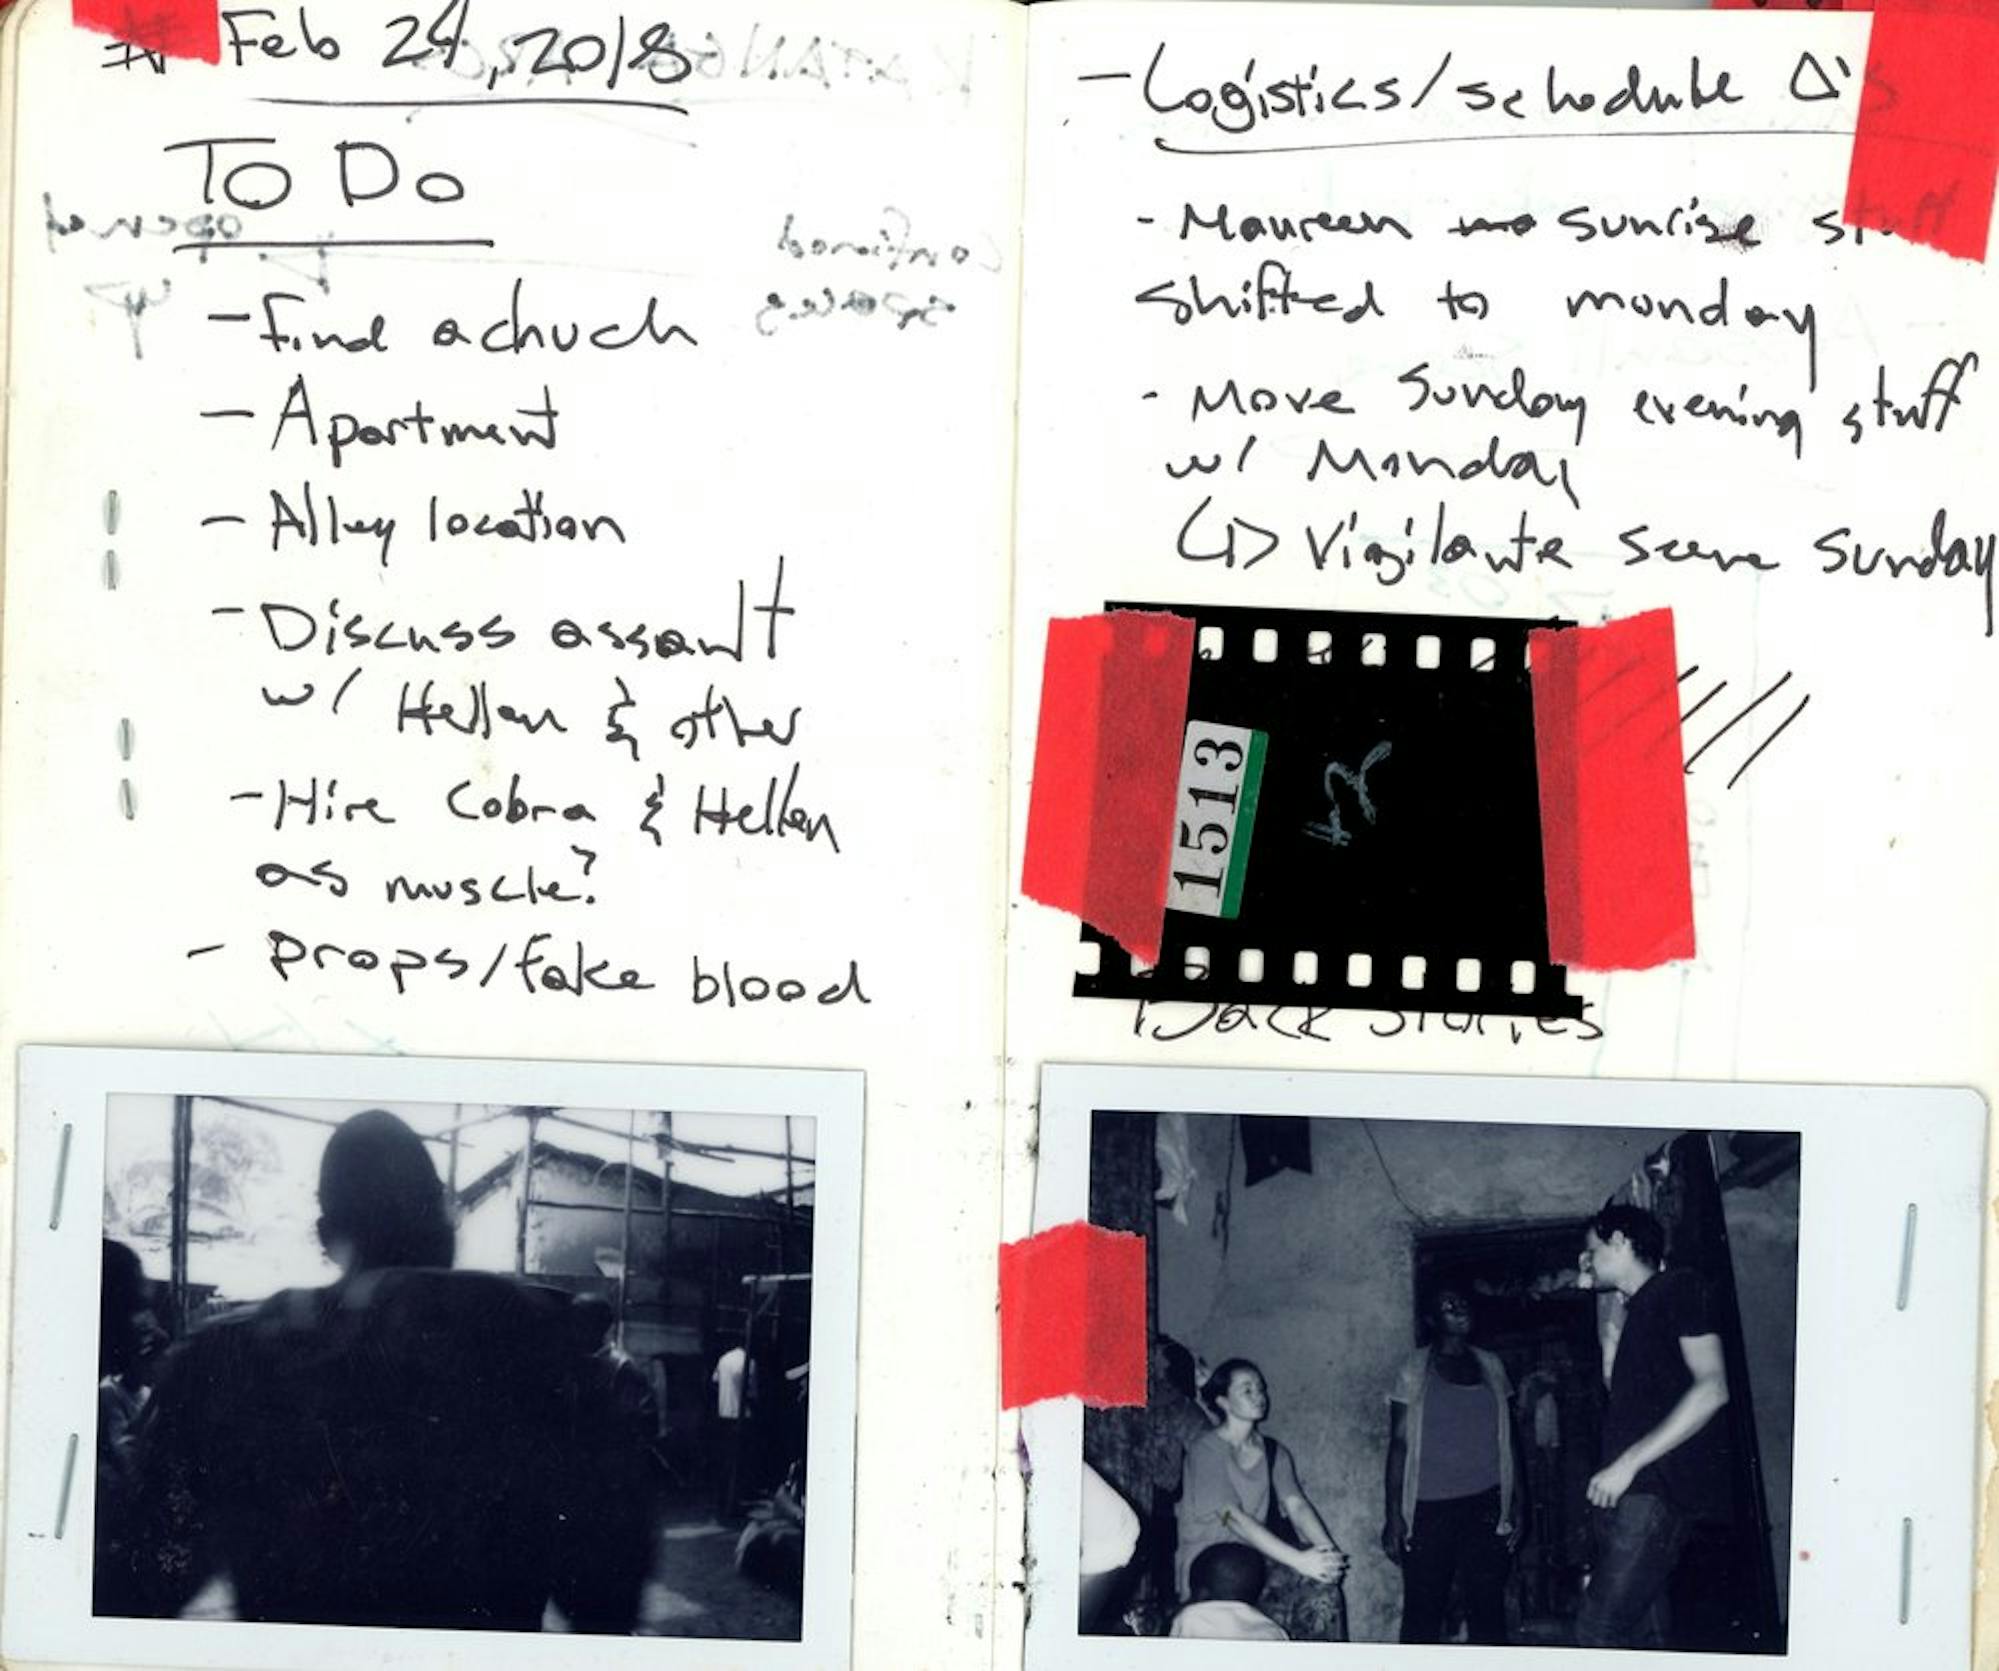 # Feb 24, 2018
To Do
- Find a chuch
- Apartment
- Alley location
- Discuss assault
w/ Hellen & other
- Hire Cobra & Hellen
as muscle?
- props/fake blood
- Logistics/schedule Δ's
- Maureen sunrise stuff
shifted to monday
- Move Sunday evening stuff
w/ Monday
(1) Vigilante scene Sunday
1513
Back stories